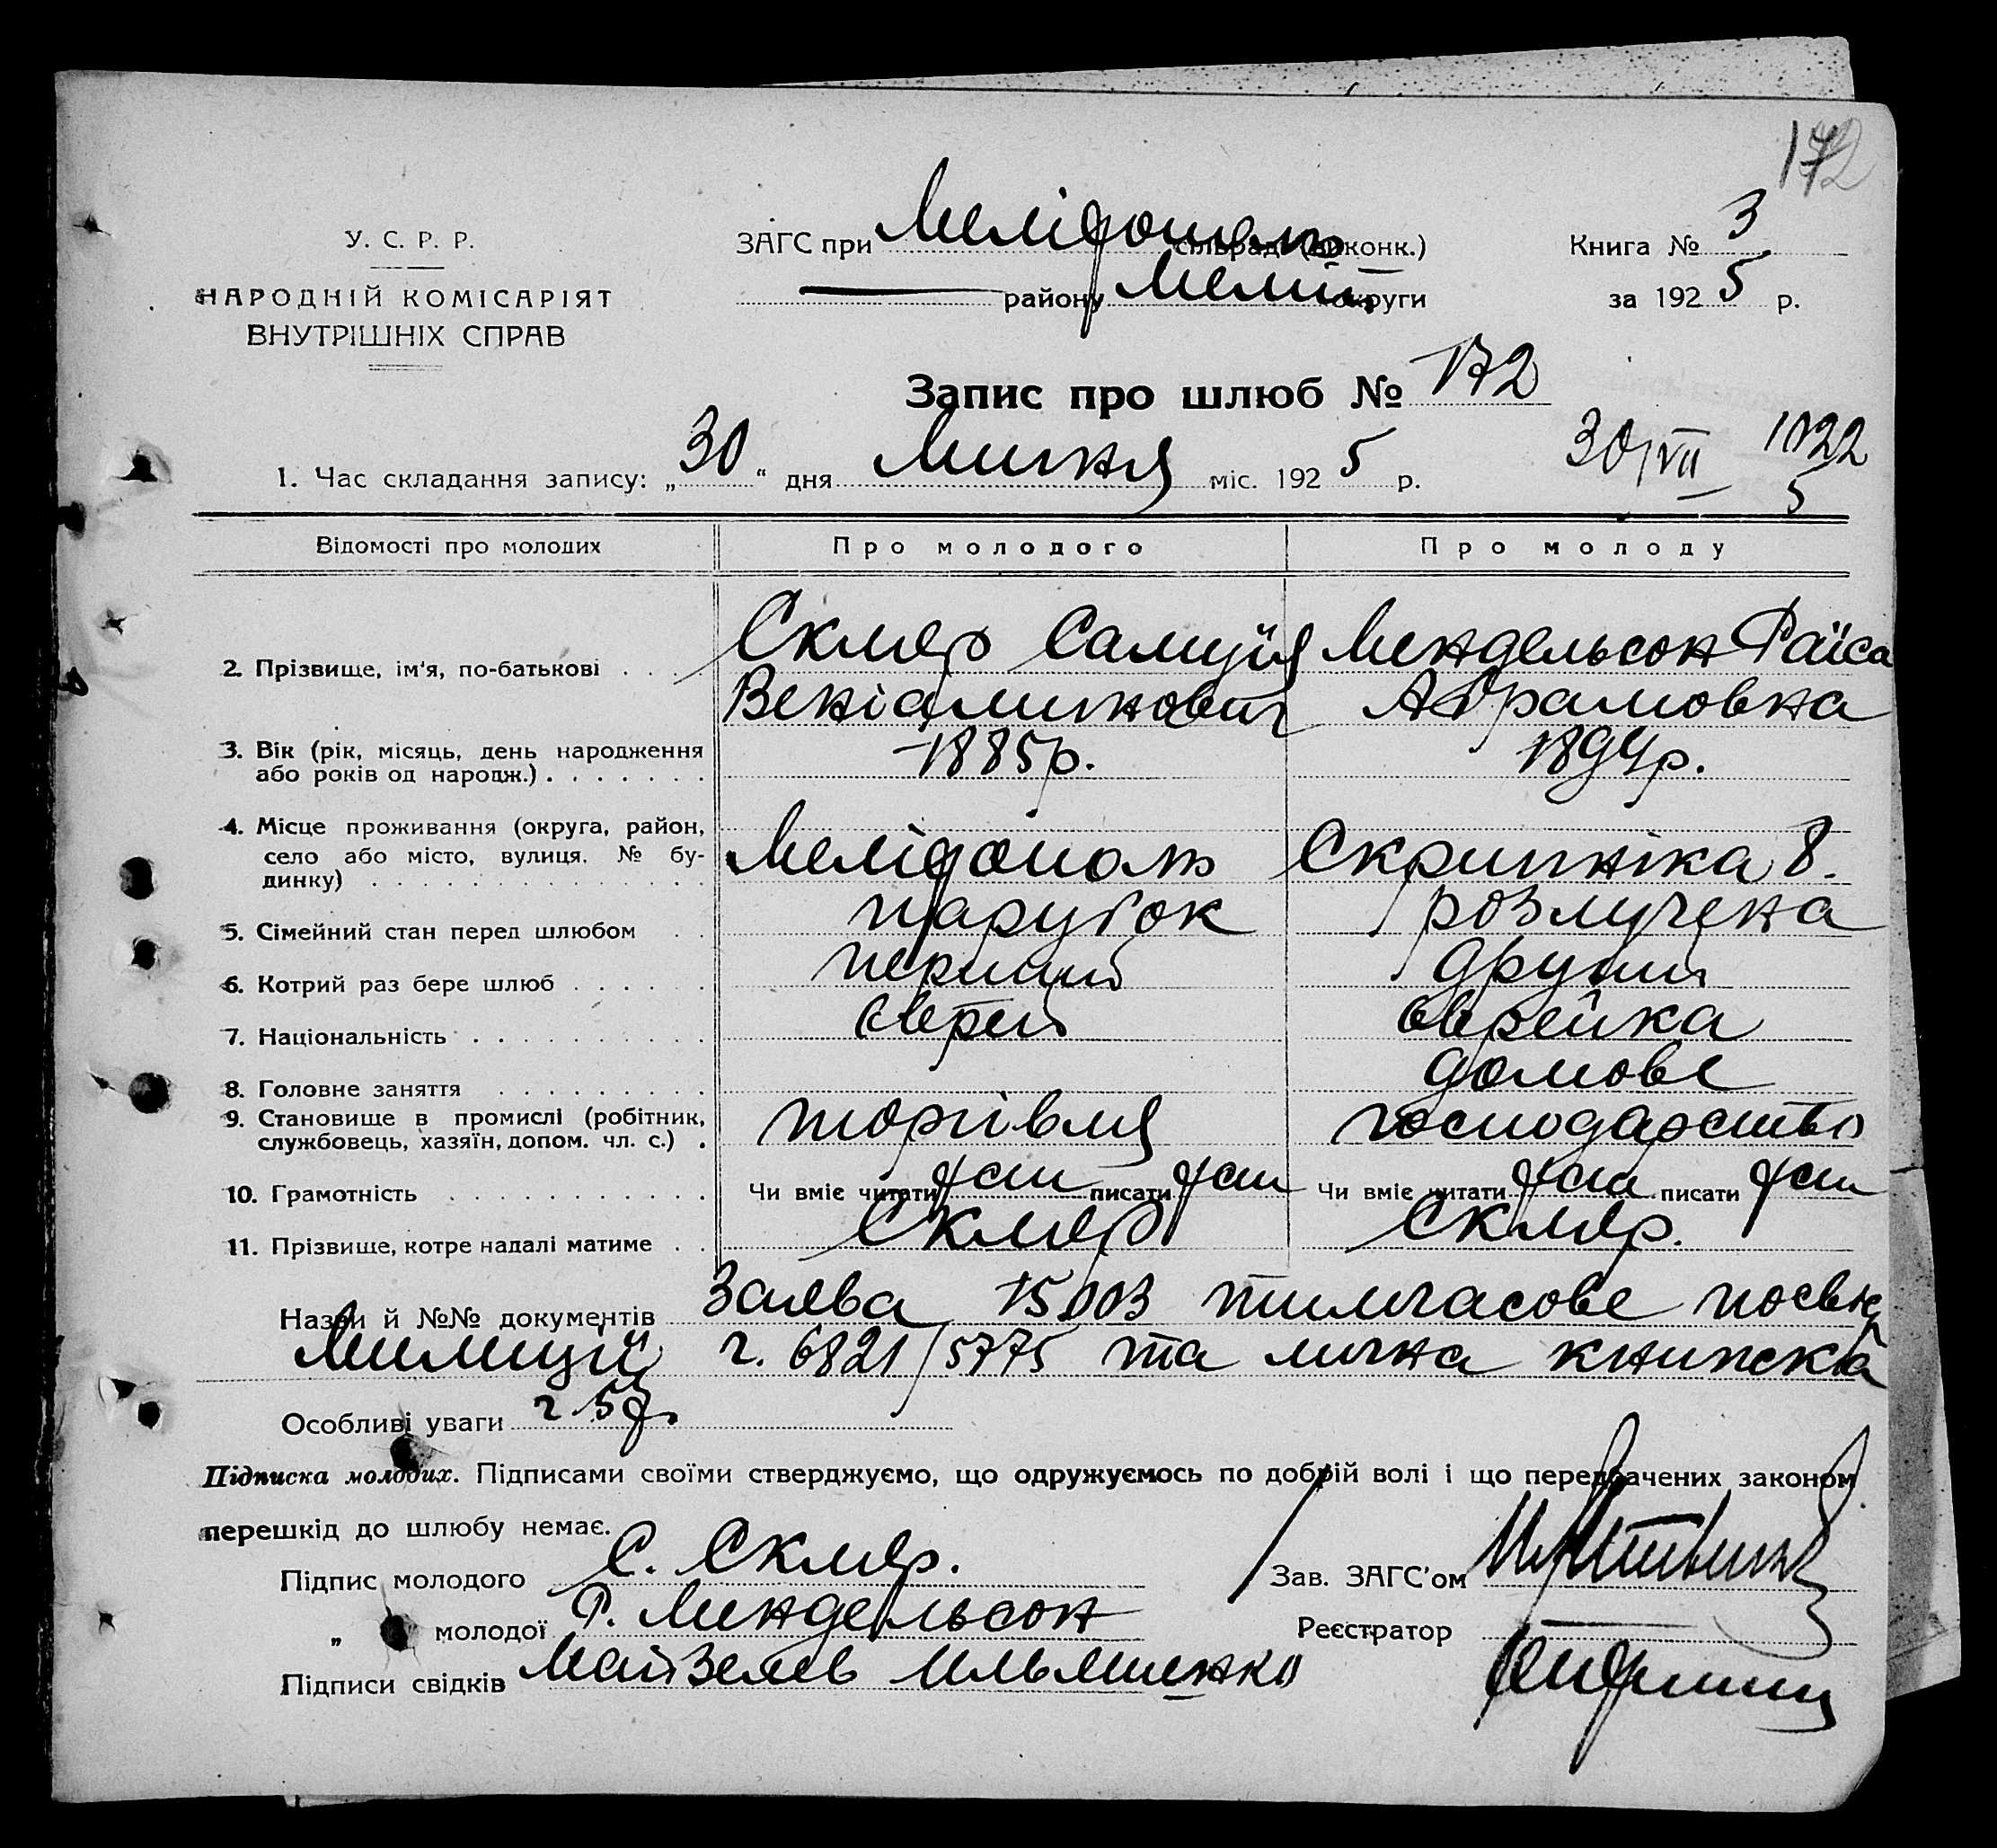 172
У. С. Р. Р.
НАРОДНІЙ КОМІСАРІЯТ
ВНУТРІШНІХ СПРАВ
ЗАГС при Мелітополь сільраді (виконк.)
району Меліт. округи
Книга № 3
за 1925 р.
Запис про шлюб № 172
1. Час складання запису: „30“ дня Липня міс. 1925 р.
30/VII 1022
5
Відомості про молодих Про молодого Про молоду
2. Прізвище, ім'я, по-батькові . . . Скляр Самуїл Мендельсон Раїса
Веніамінович Абрамовна
3. Вік (рік, місяць, день народження
або років од народж.) . . . . . . . 1885р. 1894р.
4. Місце проживання (округа, район,
село або місто, вулиця. № бу-
динку) . . . . . . . . . . . . . . Мелітополь Скрипніка 8.
5. Сімейний стан перед шлюбом . . парубок розлучена
6. Котрий раз бере шлюб . . . . . . перший другий
7. Національність . . . . . . . . . . єврей єврейка
8. Головне заняття . . . . . . . . . домове
9. Становище в промислі (робітник,
службовець, хазяїн, допом. чл. с.) . торгівля господарство
10. Грамотність . . . . . . . . . . . Чи вміє читати так писати так Чи вміє читати так писати так
11. Прізвище, котре надалі матиме . . Скляр Скляр.
Назви й №№ документів Заява 15003 тимчасове посвід
Милиції ч. 6821/5775 та лична книжка
Особливі уваги ч 57
Підписка молодих. Підписами своїми стверджуємо, що одружуємось по добрій волі і що передбачених законом
перешкід до шлюбу немає.
Підпис молодого С. Скляр.
Зав. ЗАГС'ом
„ молодої Р. Мендельсон
Реєстратор
Підписи свідків Майзелев Ильяшенко